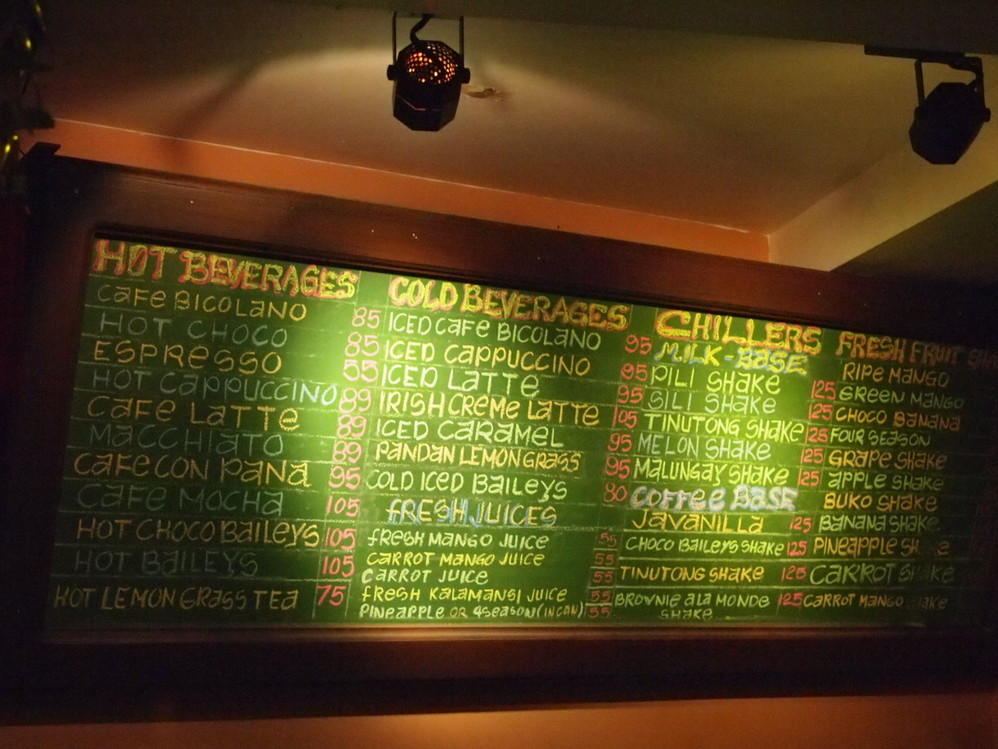 HOT BEVERAGES
CAFE BICOLANO 85
HOT CHOCO 85
ESPRESSO 55
HOT CAPPUCCINO 89
CAFE LATTE 89
MACCHIATO 89
CAFE CON PANA 95
CAFE MOCHA 105
HOT CHOCO BAILEYS 105
HOT BAILEYS 105
HOT LEMON GRASS TEA 75
COLD BEVERAGES
ICED CAFE BICOLANO 95
ICED CAPPUCCINO 95
ICED LATTE 95
IRISH CREME LATTE 105
ICED CARAMEL 95
PANDAN LEMON GRASS 95
COLD ICED BAILEYS 80
FRESH JUICES
FRESH MANGO JUICE 55
CARROT MANGO JUICE 55
CARROT JUICE 55
FRESH KALAMANSI JUICE 55
PINEAPPLE OR 4SEASON (IN CAN) 55
CHILLERS
MILK-BASE
PILI SHAKE 125
SILI SHAKE 125
TINUTONG SHAKE 125
MELON SHAKE 125
MALUNGAY SHAKE 125
COFFEE BASE
JAVANILLA 125
CHOCO BAILEYS SHAKE 125
TINUTONG SHAKE 125
BROWNIE ALA MONDE 125
SHAKE
FRESH FRUIT
RIPE MANGO
GREEN MANGO
CHOCO BANANA
FOUR SEASON
GRAPE SHAKE
APPLE SHAKE
BUKO SHAKE
BANANA SHAKE
PINEAPPLE
CARROT SHAKE
CARROT MANGO